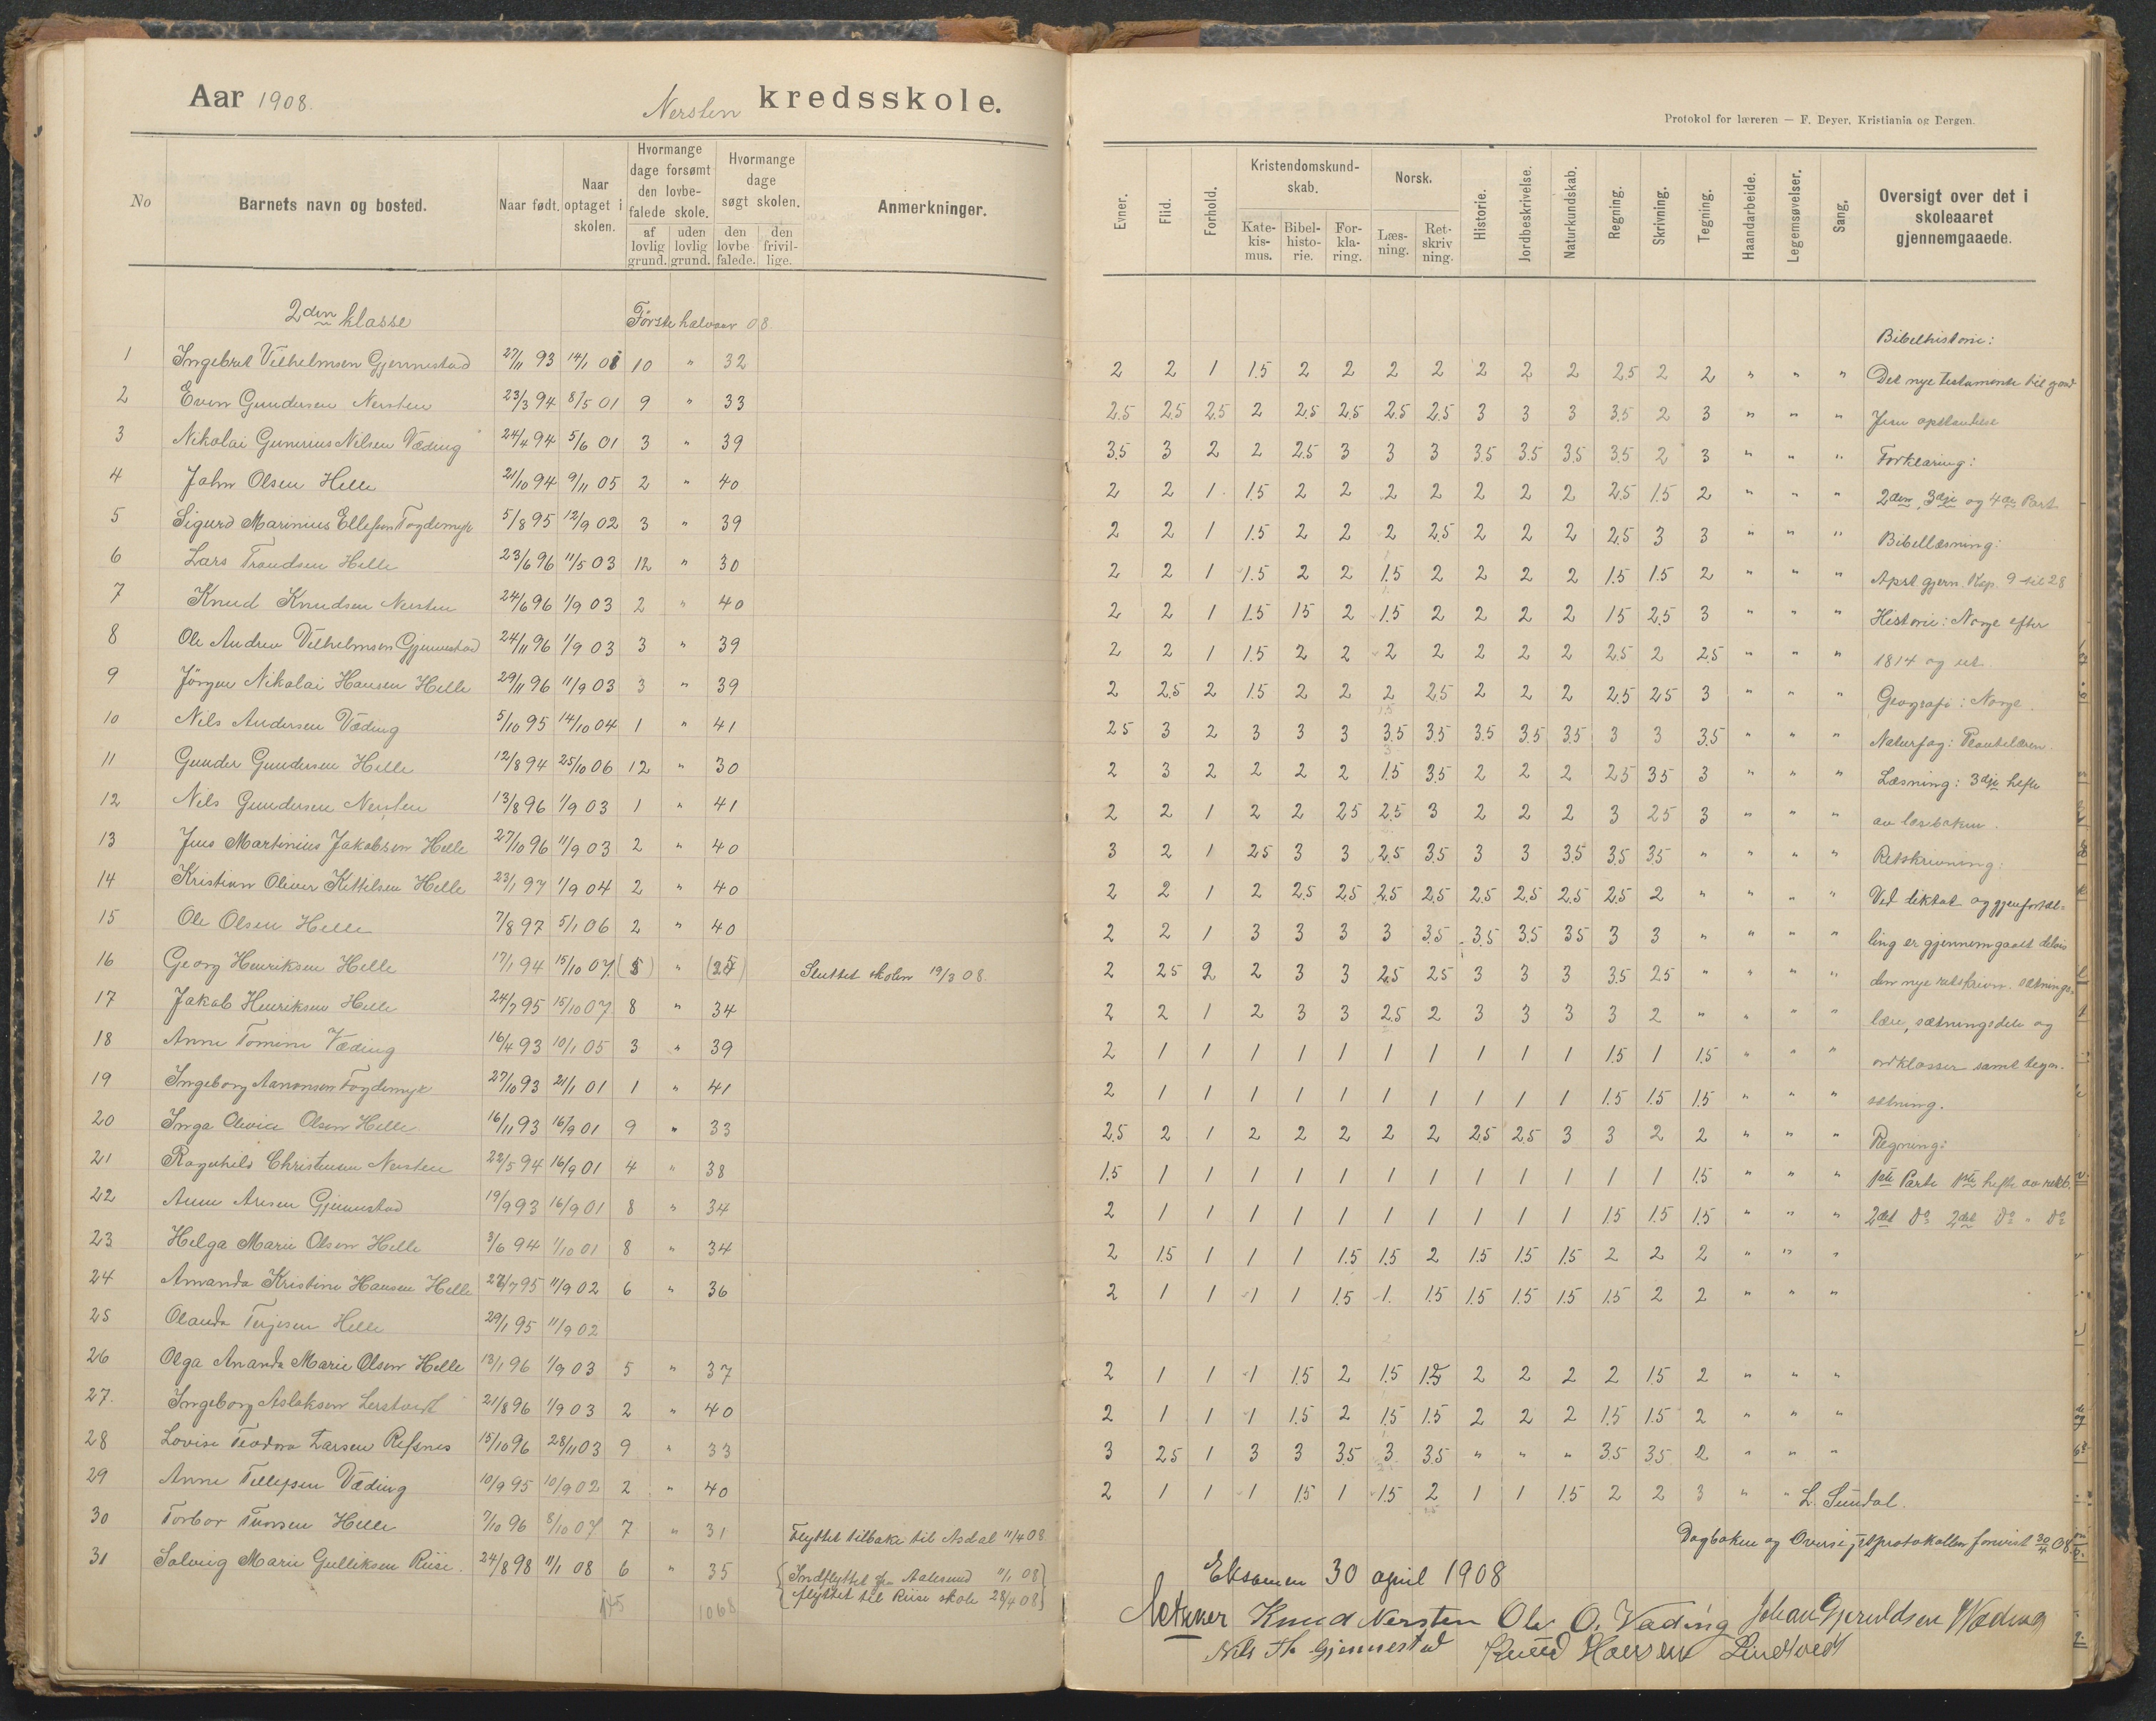 Aar 1908.
Nersten kredsskole.
No
Barnets navn og bosted.
Naar født.
Naar optaget i skolen.
Hvormange dage forsømt den lovbefalede skole.
af lovlig grund.
uden lovlig grund.
Hvormange dage søgt skolen.
den lovbefalede.
den frivillige.
Anmerkninger.
2den klasse Første halvaar 08
1 Ingebret Vilhelmsen Gjennestad 27/11 93 14/1 01 10 " 32
2 Even Gundersen Nersten 23/3 94 8/5 01 9 " 33
3 Nikolai Gunerius Nilsen Væding 24/4 94 5/6 01 3 " 39
4 John Olsen Helle 21/10 94 9/11 05 2 " 40
5 Sigurd Marinius Ellefsen Fogdemyr 5/8 95 12/9 02 3 " 39
6 Lars Trondsen Helle 23/6 96 11/5 03 12 " 30
7 Knud Knudsen Nersten 24/6 96 1/9 03 2 " 40
8 Ole Andreu Vilhelmsen Gjennestad 24/11 96 1/9 03 3 " 39
9 Jörgen Nikolai Hansen Helle 29/11 96 11/9 03 3 " 39
10 Nils Andersen Væding 5/10 95 14/10 04 1 " 41
11 Gunder Gundersen Helle 12/8 94 25/10 06 12 " 30
12 Nils Gundersen Nersten 13/8 96 1/9 03 1 " 41
13 Jens Martinius Jakobsen Helle 27/10 96 11/9 03 2 " 40
14 Kristian Oliver Kittilsen Helle 23/1 97 1/9 04 2 " 40
15 Ole Olsen Helle 7/8 97 5/1 06 2 " 40
16 Georg Henriksen Helle 17/1 94 15/10 07 (5) " (25) Sluttet skolen 19/3 08.
17 Jakob Henriksen Helle 24/7 95 15/10 07 8 " 34
18 Anne Tomine Væding 16/4 93 10/1 05 3 " 39
19 Ingeborg Aanonsen Fogdemyr 27/10 93 21/1 01 1 " 41
20 Inga Olevie Olsen Helle 16/11 93 16/9 01 9 " 33
21 Ragnhild Christensen Nersten 22/5 94 16/9 01 4 " 38
22 Anne Aresen Gjennestad 19/9 93 16/9 01 8 " 34
23 Helga Marie Olsen Helle 3/6 94 1/10 01 8 " 34
24 Amanda Kristine Hansen Helle 27/7 95 11/9 02 6 " 36
25 Olanda Terjesen Helle 29/1 95 11/9 02
26 Olga Ananda Marie Olsen Helle 13/1 96 1/9 03 5 " 37
27. Ingeborg Aslaksen Lerstvedt 21/8 96 1/9 03 2 " 40
28 Lovise Teodora Larsen Refsnes 15/10 96 28/11 03 9 " 33
29 Anne Tellefsen Væding 10/9 95 10/9 02 2 " 40
30 Torbor Tronsen Helle 7/10 96 8/10 07 7 " 31 Flyttet tilbake til Asdal 11/4 08
31 Solveig Marie Gulliksen Riise. 24/8 98 11/1 08 6 " 35 Indflyttet fra Aalesund 11/1 08
flyttet til Riise skole 28/4 08
145 1068
Protokol for læreren — F. Beyer, Kristiania og Bergen.
Evner.
Flid.
Forhold.
Kristendomskundskab.
Katekismus.
Bibelhistorie.
Forklaring.
Norsk.
Læsning.
Retskrivning.
Historie.
Jordbeskrivelse.
Naturkundskab.
Regning.
Skrivning.
Tegning.
Haandarbeide.
Legemsøvelser.
Sang.
Oversigt over det i skoleaaret gjennemgaaede.
Bibelhistorie:
2 2 1 1.5 2 2 2 2 2 2 2 2.5 2 2 " " " Det nye testamente til
2.5 2.5 2.5 2 2.5 2.5 2.5 2.5 3 3 3 3.5 2 3 " " " Jesu opstandelse
3.5 3 2 2 2.5 3 3 3 3.5 3.5 3.5 3.5 2 3 " " " Forklaring:
2 2 1 1.5 2 2 2 2 2 2 2 2.5 1.5 2 " " " 2den, 3dje og 4de Part
2 2 1 1.5 2 2 2 2.5 2 2 2 2.5 3 3 " " " Bibellæsning:
2 2 1 1.5 2 2 1.5 2 2 2 2 1.5 1.5 2 " " " Apst gjern. Kap. 9 til 28
2 2 1 1.5 1.5 2 1.5 2 2 2 2 1.5 2.5 3 " " " Historie: Norge efter
2 2 1 1.5 2 2 2 2 2 2 2 2.5 2 2.5 " " " 1814 og ut.
2 2.5 2 1.5 2 2 2 2.5 2 2 2 2.5 2.5 3 " " " Geografi: Norge.
2.5 3 2 3 3 3 3.5 3.5 3.5 3.5 3.5 3 3 3.5 " " " Naturfag: Plantelæren.
2 3 2 2 2 2 1.5 3.5 2 2 2 2.5 3.5 3 " " " Læsning: 3dje hefte
2 2 1 2 2 2.5 2.5 3 2 2 2 3 2.5 3 " " " av læseboken.
3 2 1 2.5 3 3 2.5 3.5 3 3 3.5 3.5 3.5 " " " " Retskrivning:
2 2 1 2 2.5 2.5 2.5 2.5 2.5 2.5 2.5 2.5 2 " " " " Ved diktat og gjenfortæl-
2 2 1 3 3 3 3 3.5 3.5 3.5 3.5 3 3 " " " " ling er gjennemgaatt delvis
2 2.5 2 2 3 3 2.5 2.5 3 3 3 3.5 2.5 " " " " den nye retskrivn. sætnings-
2 2 1 2 3 3 2.5 2 3 3 3 3 2 " " " " lære, sætningsdele og
2 1 1 1 1 1 1 1 1 1 1 1.5 1 1.5 " " " ordklasser samt tegn-
2 1 1 1 1 1 1 1 1 1 1 1.5 1.5 1.5 " " " sætning.
2.5 2 1 2 2 2 2 2 2.5 2.5 3 3 2 2 " " " Regning:
1.5 1 1 1 1 1 1 1 1 1 1 1 1 1.5 " " " 1ste Parti 1ste hefte av
2 1 1 1 1 1 1 1 1 1 1 1.5 1.5 1.5 " " " 2det Do 2det Do " Do
2 1.5 1 1 1 1.5 1.5 2 1.5 1.5 1.5 2 2 2 " " "
2 1 1 1 1 1.5 1 1.5 1.5 1.5 1.5 1.5 2 2 " " "
2 1 1 1 1.5 2 1.5 1.5 2 2 2 2 1.5 2 " " "
2 1 1 1 1.5 2 1.5 1.5 2 2 2 1.5 1.5 2 " " "
3 2.5 1 3 3 3.5 3 3.5 " " " 3.5 3.5 2 " " "
2 1 1 1 1.5 1 1.5 2 1 1 1.5 2 2 3 " " L. Sundal.
Dagboken og Oversigtsprotokollen forevist 30/4 08.
Eksamen 30 april 1908
Knud Nersten Ole O. Væding Johan Gjeruldsen Væding
Nils Th Gjennestad Knud Hansen Lindtvedt